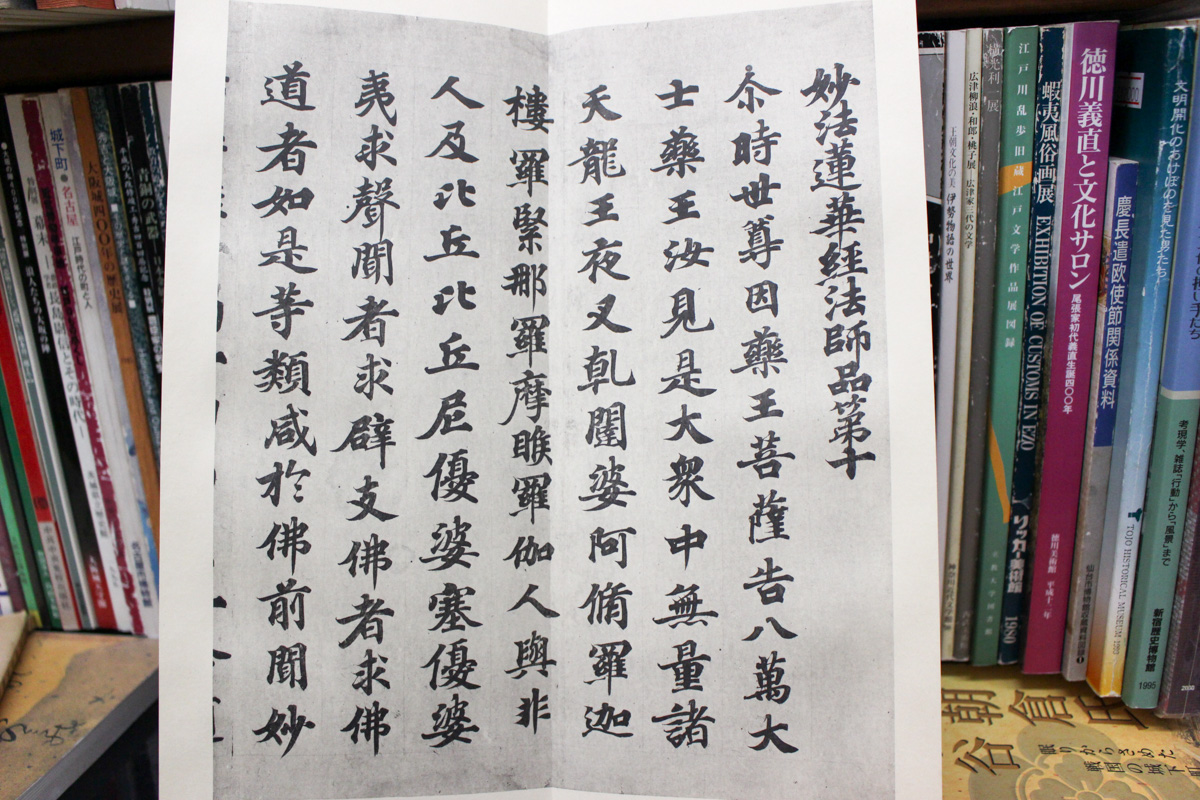 妙法蓮華經法師品第十
尒時世尊因藥王菩薩告八萬大
士藥王汝見是大衆中無量諸
天龍王夜叉乹闥婆阿脩羅迦
樓羅緊那羅摩睺羅伽人與非
人及比丘比丘尼優婆塞優婆
夷求聲聞者求辟支佛者求佛
道者如是等類咸於佛前聞妙
城下町
名古屋 江戸時代の町と人
大阪城四〇〇年の歴史展
青銅の武器
王朝文化の美 伊勢物語の世界
広津柳浪・和郎・桃子展 広津家三代の文学
江戸川乱歩旧蔵江戸文学作品展図録
蝦夷風俗画展 EXHIBITION OF CUSTOMS IN EZO
リッカー美術館
徳川義直と文化サロン 尾張家初代義直生誕四〇〇年
徳川美術館 平成十二年
慶長遣欧使節関係資料
TOJO HISTORICAL MUSEUM
文明開化のあけぼのを見た男たち
考現学、雑誌「行動」から「風景」まで
新宿歴史博物館
1995
朝倉氏
谷
眠りからさめた
戦国の城下